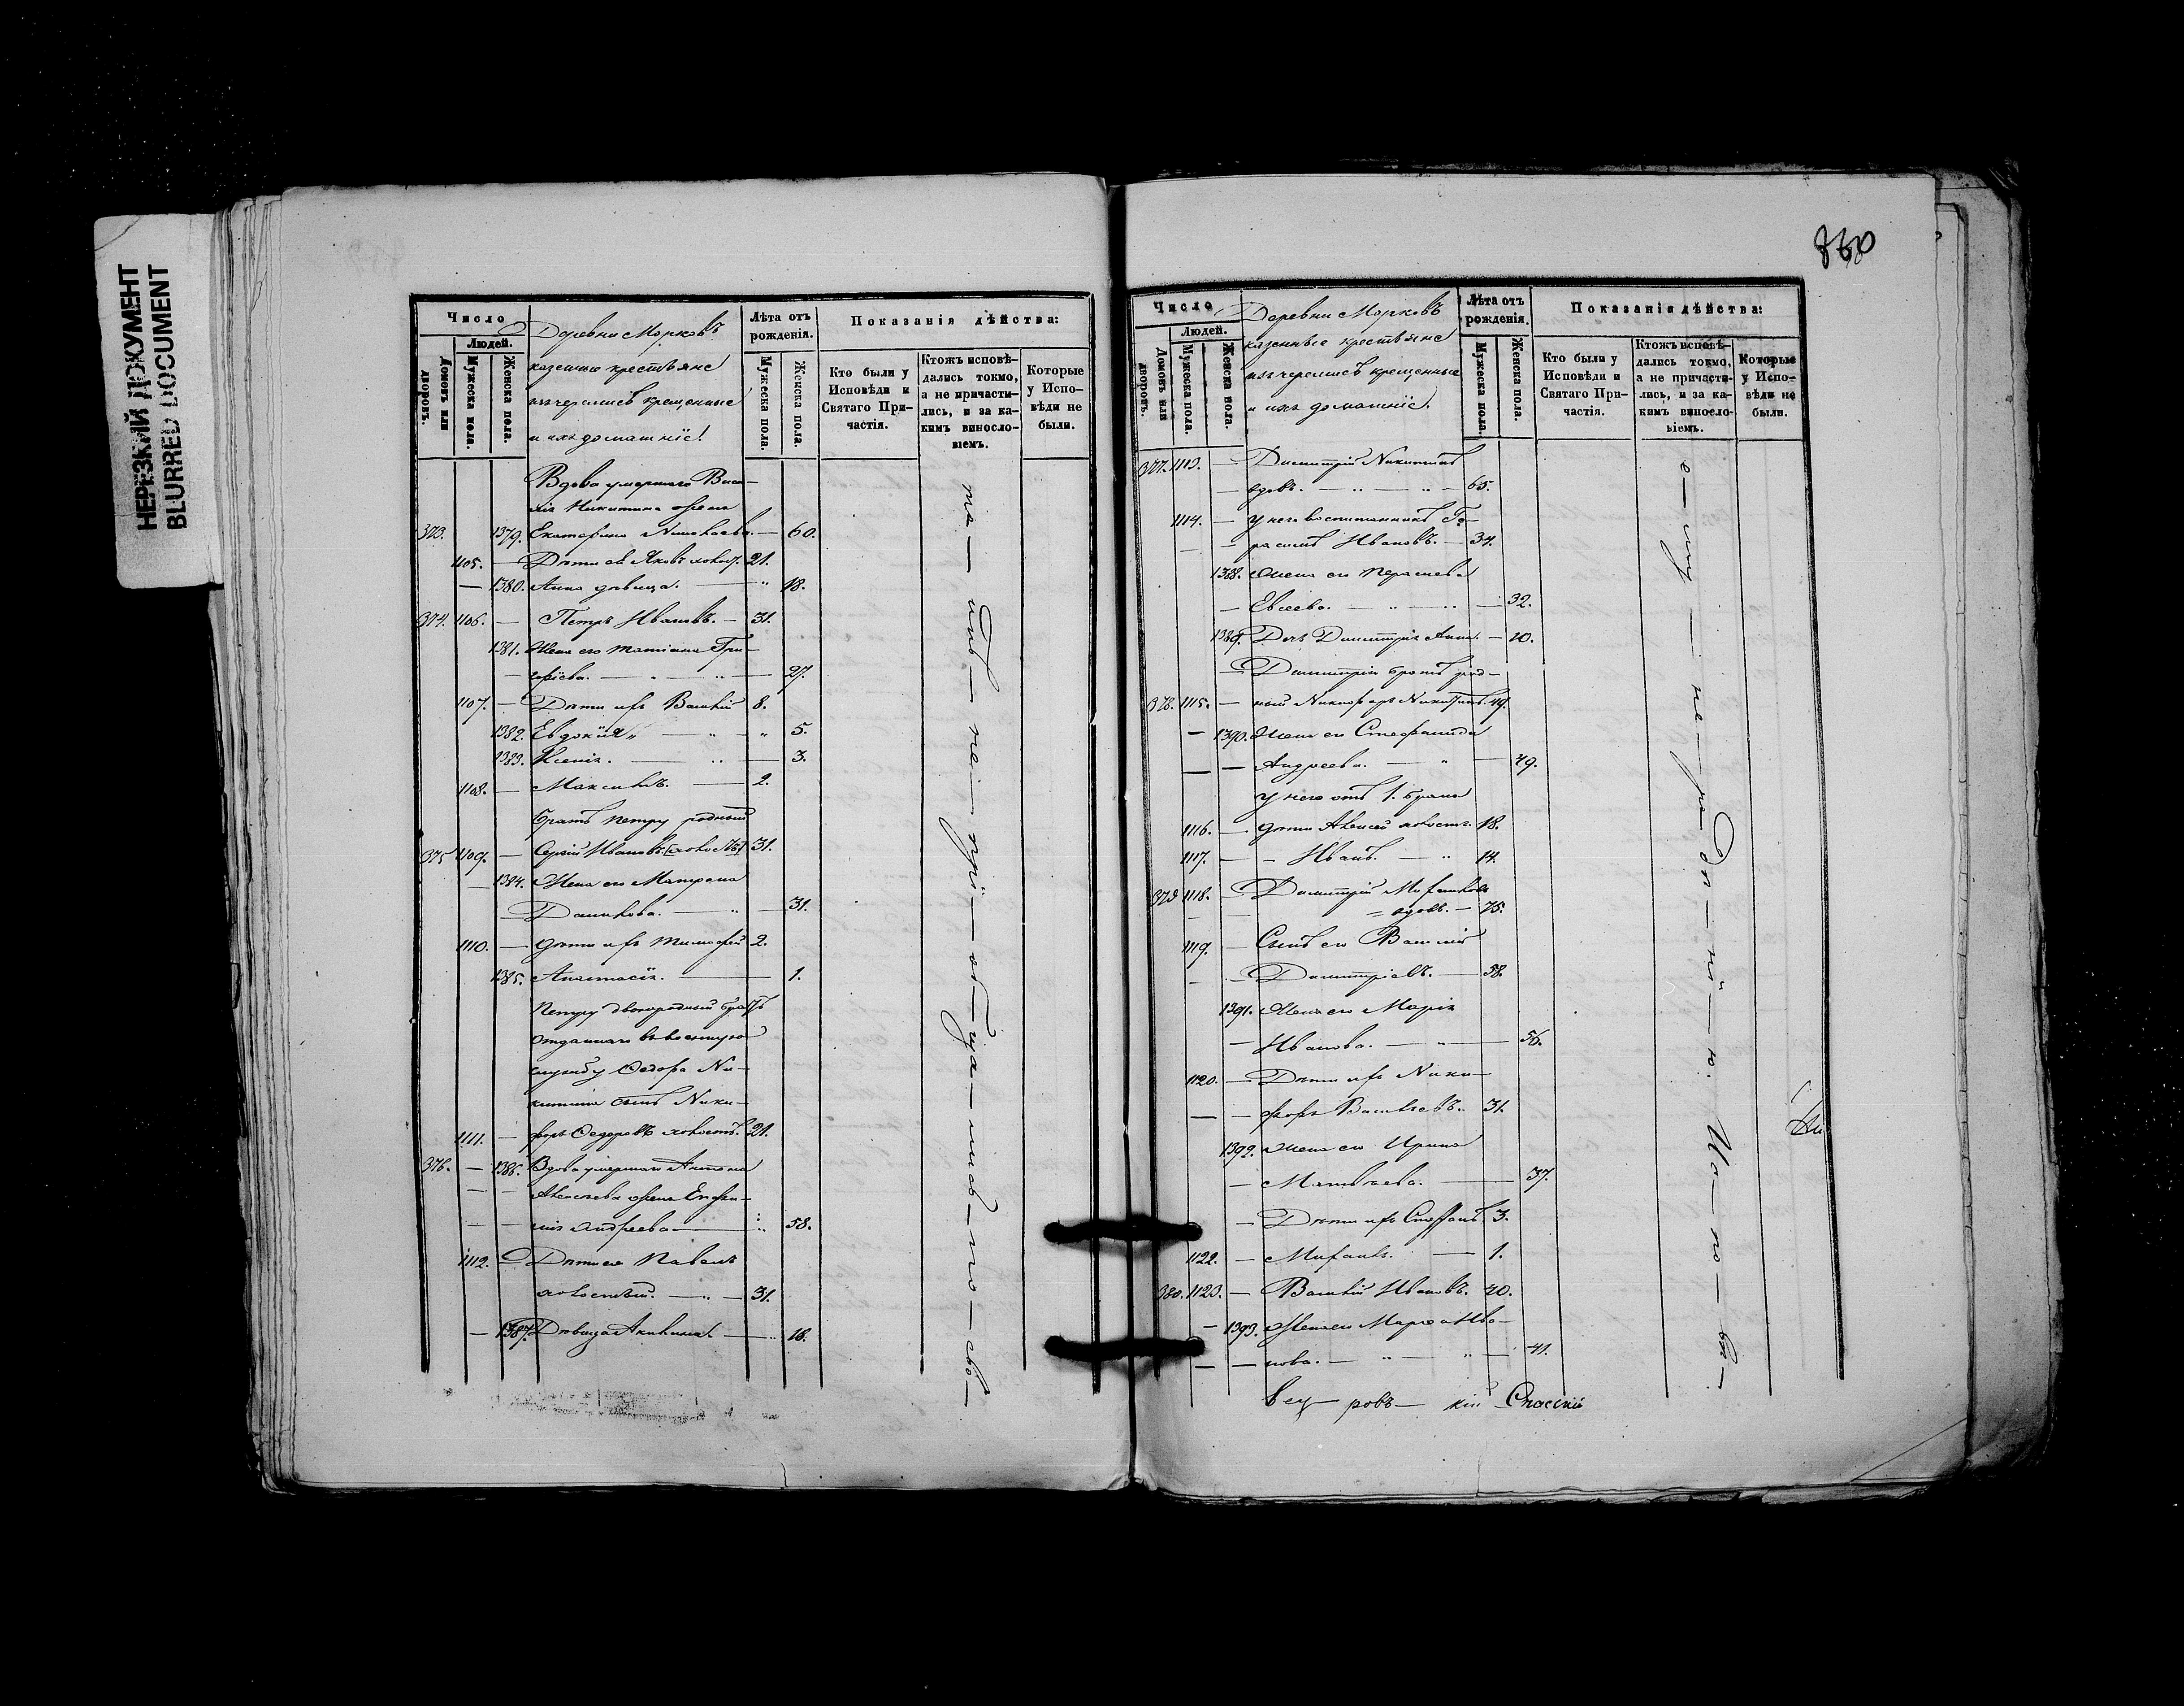 НЕРЕЗКИЙ ДОКУМЕНТ
BLURRED DOCUMENT
Число
Людей.
Домовъ или дворовъ.
Мужеска пола.
Женска пола.
Деревни Морковъ
казенные крестьяне
изъ черемисъ крещенные
и ихъ домашніе!
Лѣта отъ рожденія.
Мужеска пола.
Женска пола.
Показанія дѣйства:
Кто были у Исповѣди и Святаго Причастія.
Ктожъ исповѣдались токмо, а не причастились, и за какимъ винословіемъ.
Которые у Исповѣди не были.
Вдова умершаго Васи-
лія Никитина жена
373. 1379. Екатерина Николаева. — 60.
1105. — Дѣти ея Яковъ холост. 21.
— 1380. Анна дѣвица. — 18.
374. 1106. — Петръ Ивановъ. — 31.
1381. Жена его Татіана Гри-
горіева. — 27.
1107. — Дѣти ихъ Василій 8.
1382. Евдокія — 5.
1383. Ксенія. — 3.
1108. — Максимъ. — 2.
Братъ Петру родный
375 1109. — Сергій Ивановъ (холостъ) 31.
1384. Жена его Матрона
Данилова. — 31.
1110. — дѣти ихъ Тимофей 2.
1385. Анастасія. — 1.
Петру двоюродный братъ
отданнаго въ военную
службу Ѳедора Ни-
китина сынъ Ники-
1111. — форъ Ѳедоровъ холостъ. 21.
376. — 1386. Вдова умершаго Антона
Алексѣева жена Евфи-
мія Андреева — 58.
1112. Дѣти ея Павелъ
холостый. — 31.
— 1387. Дѣвица Акилина. — 18.
та — инъ — не — прі — об — ща — лись — по — сво —
860
Число
Людей.
Домовъ или дворовъ.
Мужеска пола.
Женска пола.
Деревни Морковъ
казенные крестьяне
изъ черемисъ крещенные
и ихъ домашніе.
Лѣта отъ рожденія.
Мужеска пола.
Женска пола.
Показанія дѣйства:
Кто были у Исповѣди и Святаго Причастія.
Ктожъ исповѣдались токмо, а не причастились, и за какимъ винословіемъ.
Которые у Исповѣди не были.
377. 1113. — Димитрій Никитинъ
— вдовъ. — 65.
1114. — У него воспитанникъ Ге-
расимъ Ивановъ. — 34.
1388. Жена его
Евсеева. — 32.
1389. Дочь Димитрія Анна. — 20.
— Димитрія братъ род-
378. 1115. — ный Никифоръ Никитинъ. 49.
— 1390. Жена его Стефанида
— Андреева. — 49.
У него отъ 1. брака
1116. — дѣти Алексей холостъ. 18.
1117. — Иванъ. — 14.
379 1118. — Димитрій Михайловъ
вдовъ. — 75.
1119. — Сынъ его Василій
— Димитріевъ. — 58.
1391. Жена его Марія
— Иванова. — 56.
1120. — Дѣти ихъ Ники-
— форъ Васильевъ. 31.
1392. Жена его Ирина
— Матвѣева. — 37.
— Дѣти ихъ Стефанъ. 3.
1122. — Михаилъ. — 1.
380. 1123. — Василій Ивановъ. 40.
— 1393. Жена его Марѳа Ива-
— нова. — 41.
е — му — не — ра — дѣ — ні — ю. Ис — по — вѣ —
ровъ — кій Спасскій